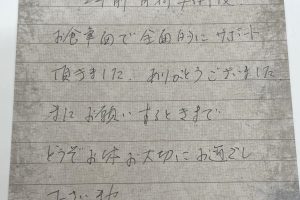 お食事面で全面的にサポート
頂きました。ありがとうございました
またお願いするときまで
どうぞお体お大切にお過ごし
下さいませ